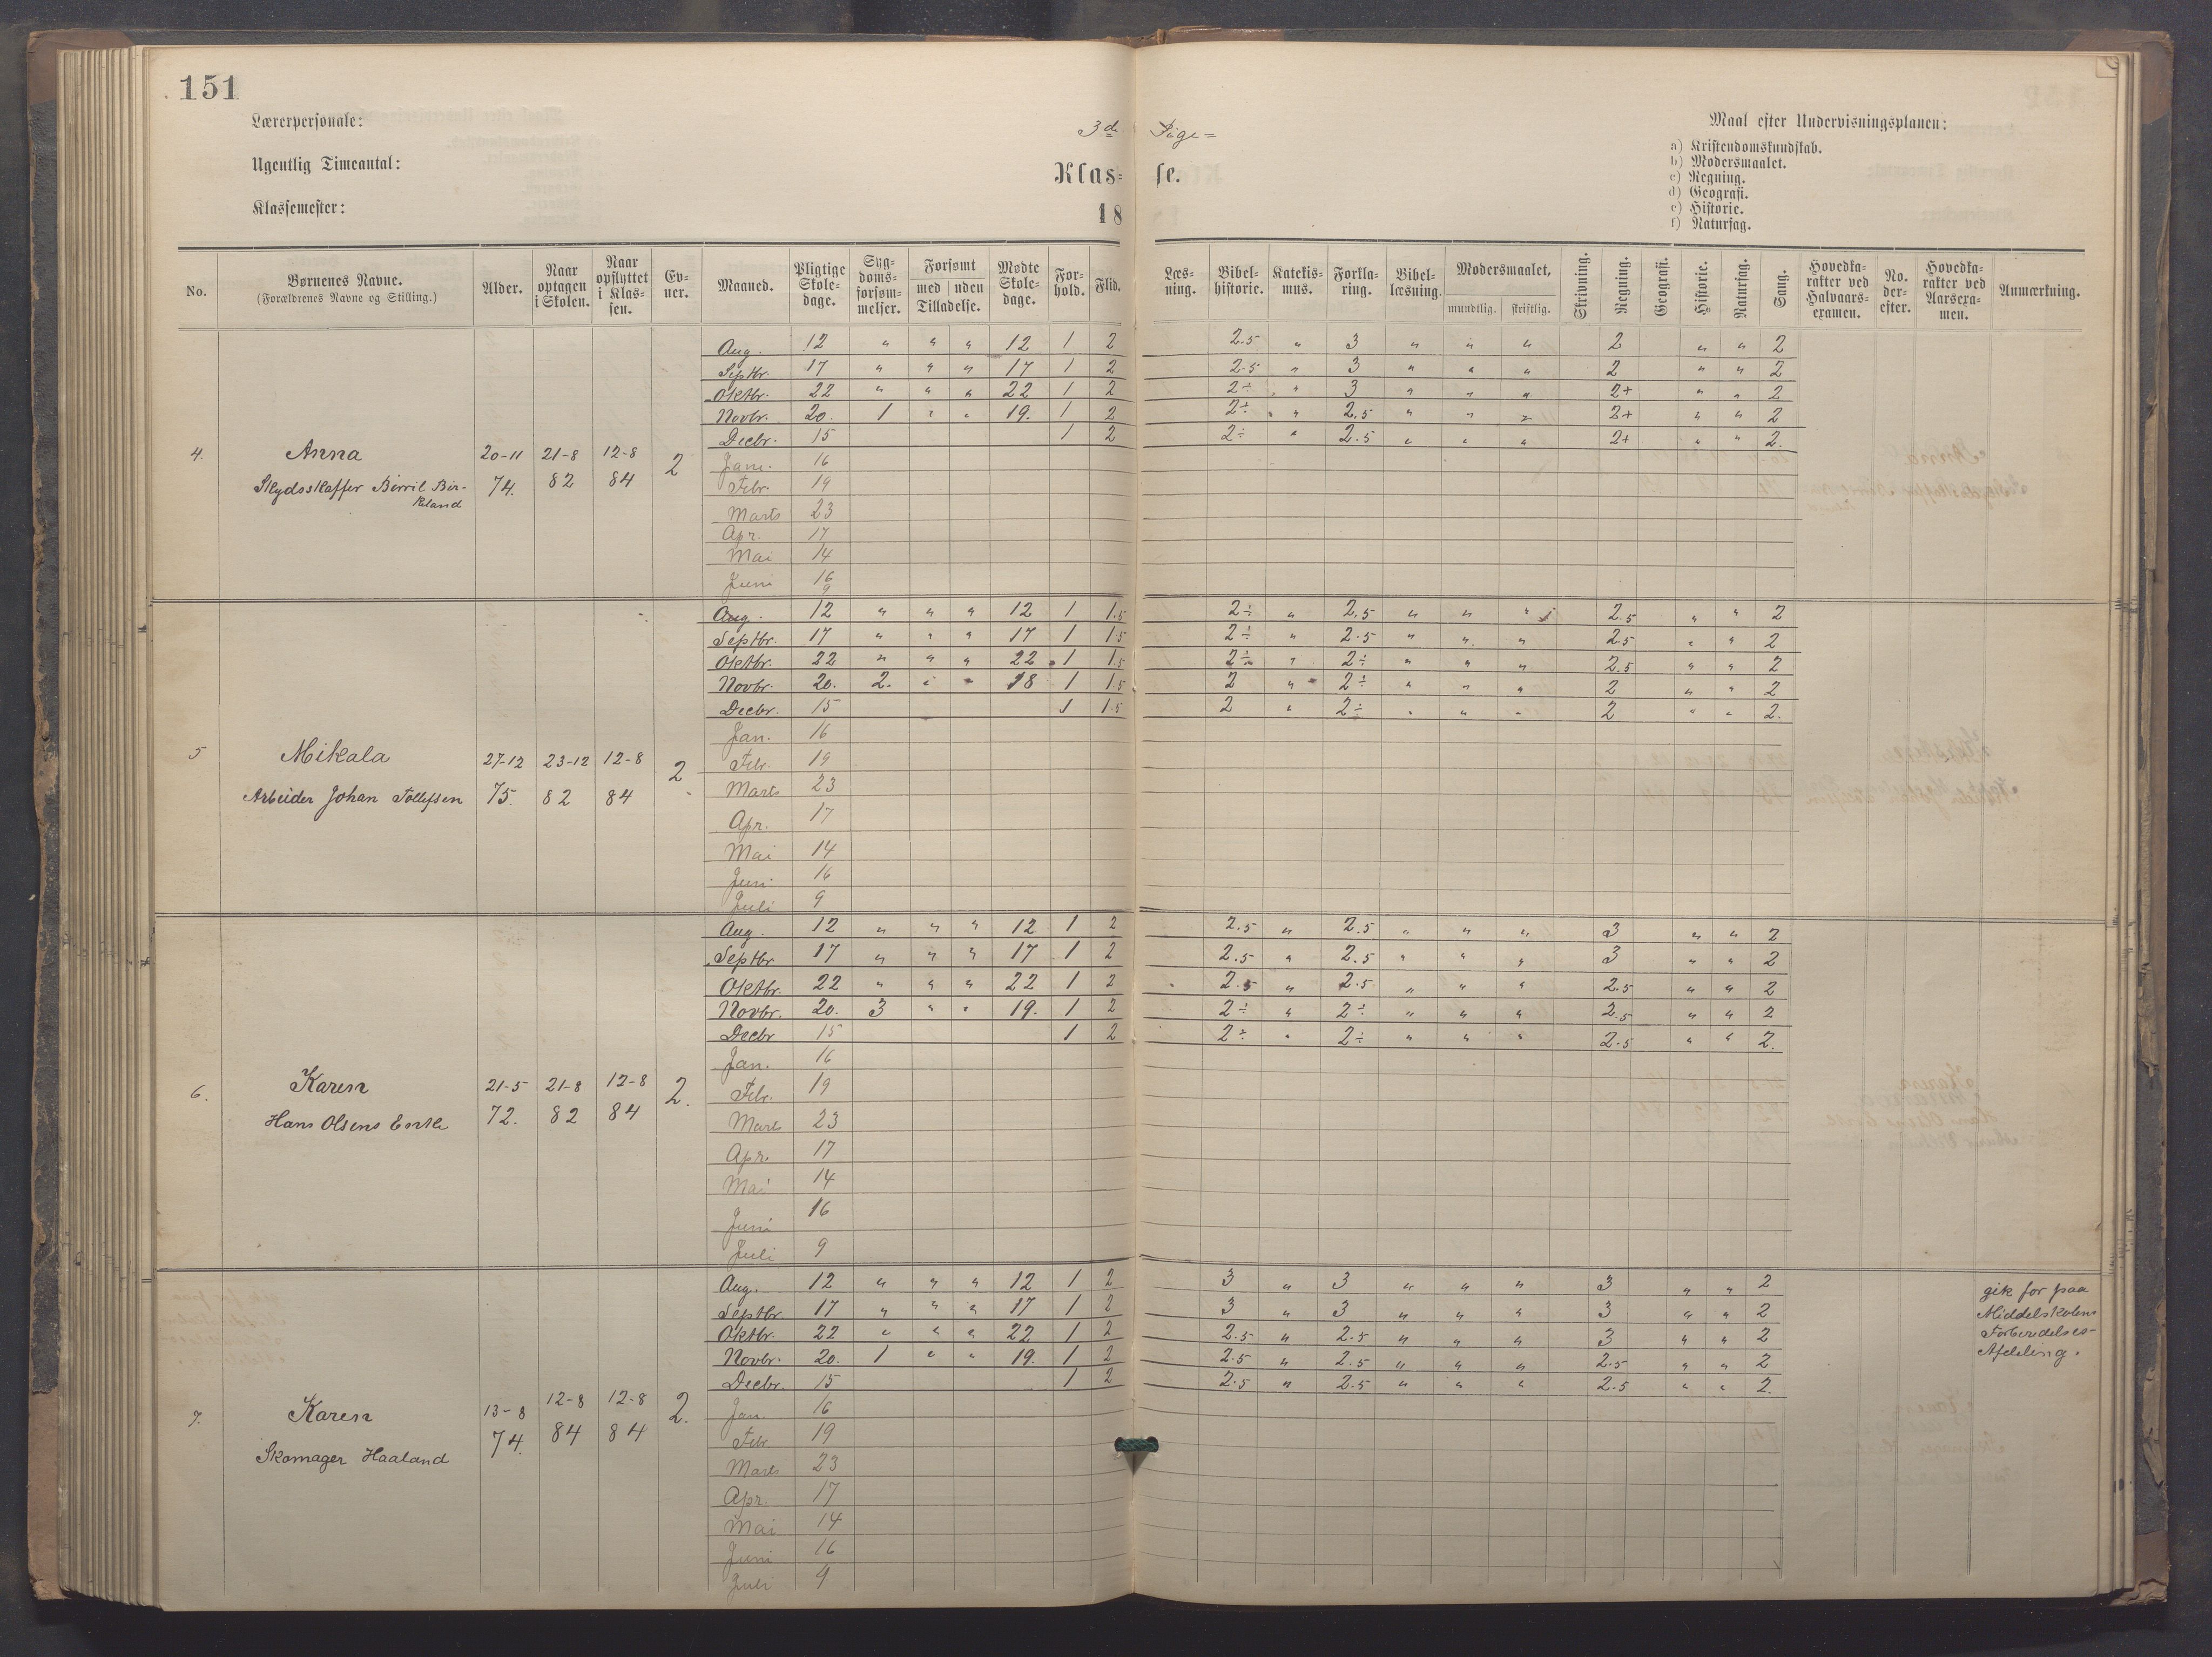 151
Lærerpersonale:
Ugentlig Timeantal:
Klassemester:
3d Pige=
Klas= se.
18
Maal efter Undervisningsplanen:
a) Kristendomskundskab.
b) Modersmaalet.
c) Regning.
d) Geografi.
e) Historie.
f) Naturfag.
No. Børnenes Navne. (Forældrenes Navne og Stilling.) Alder. Naar optagen i Skolen. Naar opflyttet i Klas=sen. Ev=ner. Maaned. Pligtige Skole=dage. Syg=doms=forsøm=melser. Forsømt med uden Tilladelse. Mødte Skole=dage. For=hold. Flid. Læs=ning. Bibel=historie. Katekis=mus. Forkla=ring. Bibel=læsning. Modersmaalet, mundtlig. skriftlig. Skrivning. Regning. Geografi. Historie. Naturfag. Sang. Hovedka=rakter ved Halvaars=examen. No. der=efter. Hovedka=rakter ved Aarsexa=men. Anmærkning.
Aug. 12 " " " 12 1 2 2.5 " 3 " " " 2 " " 2
Septbr. 17 " " " 17 1 2 2.5 " 3 " " " 2 " " 2
Oktbr. 22 " " " 22 1 2 2÷ " 3 " " " 2+ " " 2
Novbr. 20. 1 " " 19. 1 2 2÷ " 2.5 " " " 2+ " " 2
Decbr. 15 1 2 2÷ " 2.5 " " " 2+ " " 2.
4. Anna 20-11 21-8 12-8 2
Skydsskaffer Birril Bir-
kland 74. 82 84
Jan. 16
Febr. 19
Marts 23
Apr. 17
Mai 14
Juni 16
9
Aug. 12 " " " 12 1 1.5 2÷ " 2.5 " " " 2.5 " " 2
Septbr. 17 " " " 17 1 1.5 2÷ " 2.5 " " " 2.5 " " 2
Oktbr. 22 " " " 22 1 1.5 2÷ " 2÷ " " " 2.5 " " 2
Novbr. 20. 2. " " 18 1 1.5 2 " 2÷ " " " 2 " " 2
Decbr. 15 1 1.5 2 " 2÷ " " " 2 " " 2.
Jan. 16
5 Mikala 27-12 23-12 12-8 2
Arbeider Johan Tollefsen 75. 82 84
Febr. 19
Marts 23
Apr. 17
Mai 14
Juni 16
Juli 9
Aug. 12 " " " 12 1 2 2.5 " 2.5 " " " 3 " " 2
Septbr 17 " " " 17 1 2 2.5 " 2.5 " " " 3 " " 2
Oktbr. 22 " " " 22 1 2 2.5 " 2.5 " " " 2.5 " " 2
Novbr. 20. 3 " " 19. 1 2 2÷ " 2÷ " " " 2.5 " " 2
Decbr 15 1 2 2÷ " 2÷ " " " 2.5 " " 2.
Jan. 16
6. Karen 21-5 21-8 12-8 2.
Hans Olsens Enke 72. 82 84
Febr. 19
Marts 23
Apr. 17
Mai 14
Juni 16
Juli 9
Aug. 12 " " " 12 1 2 3 " 3 " " " 3 " " 2
Septbr. 17 " " " 17 1 2 3 " 3 " " " 3 " " 2
Oktbr. 22 " " " 22 1 2 2.5 " 2.5 " " " 3 " " 2
Novbr. 20. 1 " " 19. 1 2 2.5 " 2.5 " " " 2.5 " " 2
Decbr. 15 1 2 2.5 " 2.5 " " " 2.5 " " 2.
gik for paa
Middelskolens
Forberedelses-
Afdeling.
7. Karen 13-8 12-8 12-8 2.
Skomager Haaland 74. 84 84
Jan. 16
Febr. 19
Marts 23
Apr. 17
Mai 14
Juni 16
Juli 9